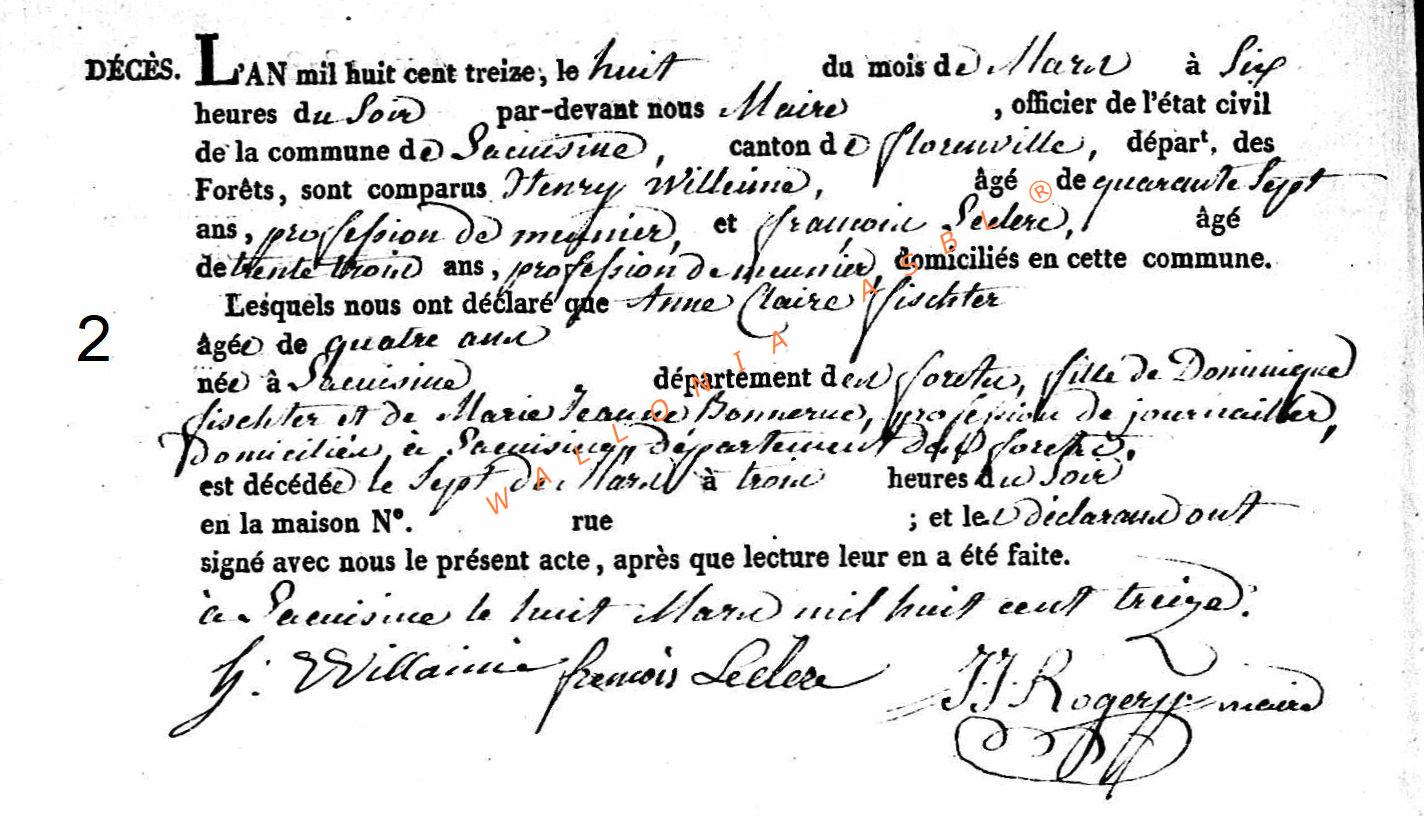 DÉCÈS. L'AN mil huit cent treize, le huit du mois de Mars à Six
heures du Soir par-devant nous Maire , officier de l'état civil
de la commune de Lacuisine, canton de florenville, départ. des
Forêts, sont comparus Henry Willeime, âgé de quarante Sept
ans, profession de meunier, et françois Leclerc, âgé
de trente trois ans, profession de meunier, domiciliés en cette commune.
Lesquels nous ont déclaré que Anne Claire fischter
âgée de quatre ans
2
née à Lacuisine, département des forets, fille de Dominique
fischter et de Marie Jeanne Bonnerue, profession de journailler,
Domiciliés à Lacuisine, département des forets,
est décédée le Sept de Mars à trois heures du Soir
en la maison N°. rue ; et les déclarans ont
signé avec nous le présent acte, après que lecture leur en a été faite.
à Lacuisine le huit Mars mil huit cent treize.
h. Willaime francois Leclere J.J. Rogery maire
WALLONIA ASBL ®